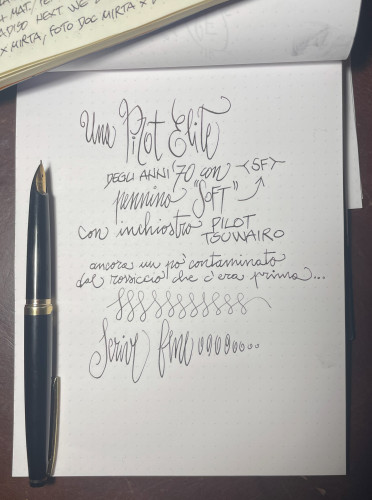 + MAT./TE
ADISO NEXT WE
× MIRTA, FOTO DOC MIRTA ×
Una Pilot Elite
DEGLI ANNI '70 con <SF>
pennino "SOFT"
con inchiostro PILOT
TSUWAIRO
ancora un po' contaminato
dal rossiccio che c'era prima...
Scrive fine